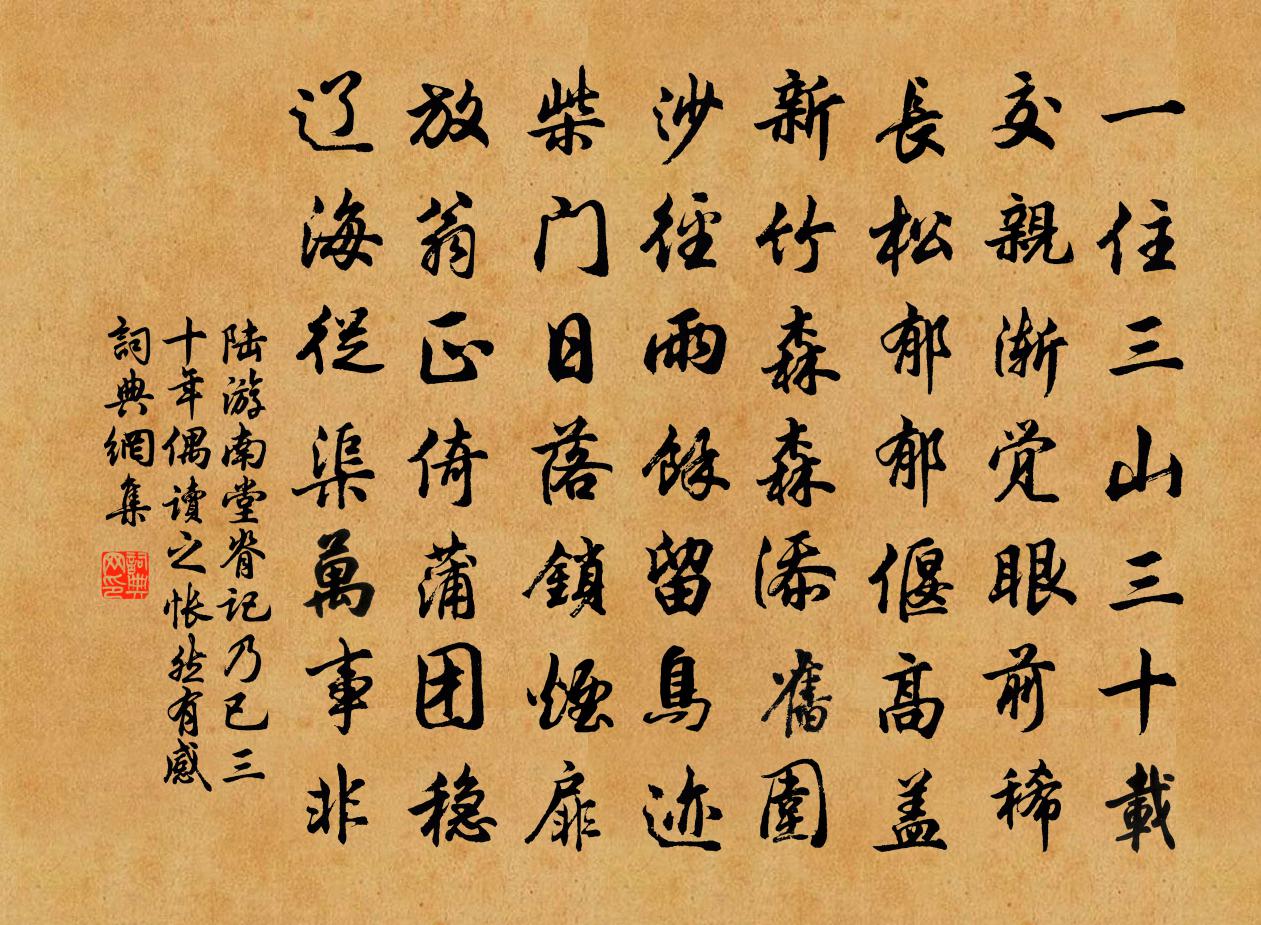 一住三山三十載
交親渐觉眼前稀
長松郁郁偃高盖
新竹森森添舊圍
沙徑雨餘留鳥迹
柴门日落鎖煙扉
放翁正倚蒲团稳
辽海從渠萬事非
陆游南堂脊記乃已三
十年偶讀之怅然有感
詞典網集
詞典网印